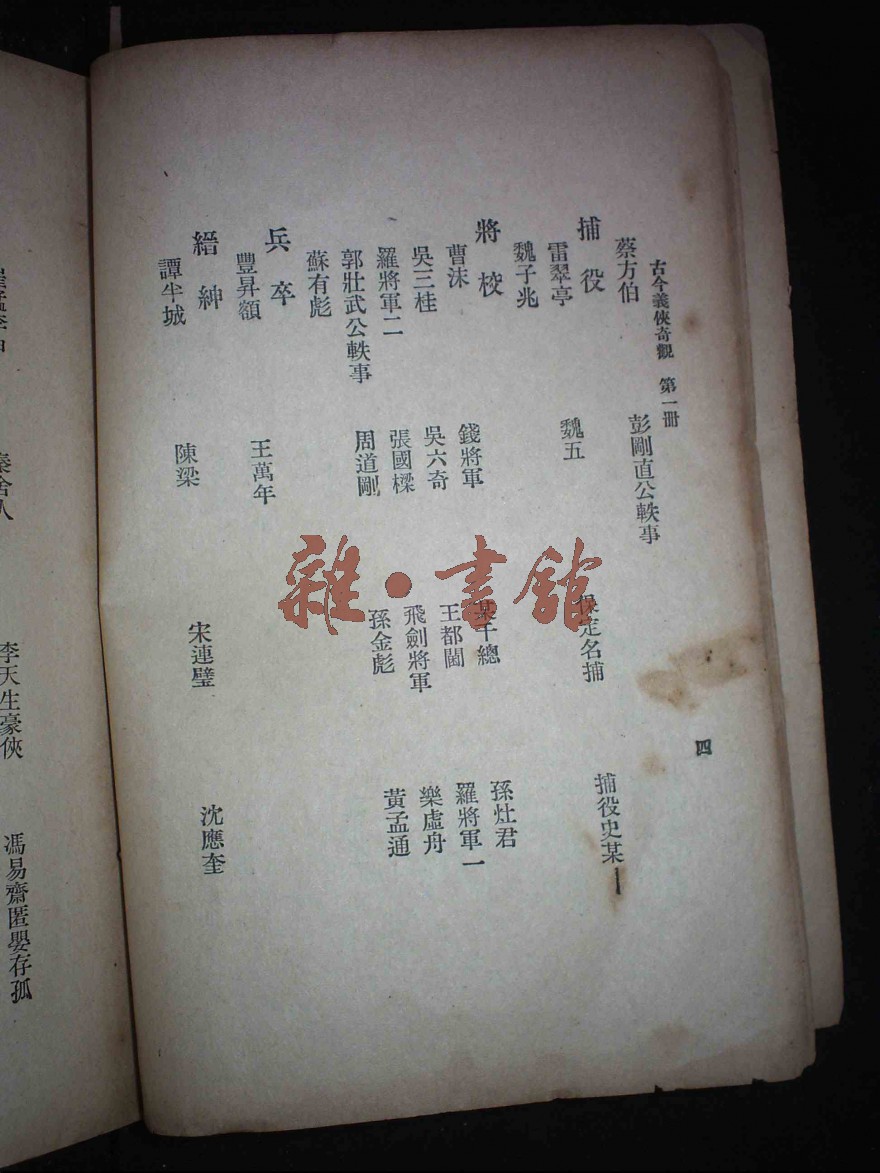 古今義俠奇觀　第一冊　四
蔡方伯　彭剛直公軼事
捕役
雷翠亭　魏五　保定名捕　捕役史某
魏子兆
將校
曹沫　錢將軍　某千總　孫灶君
吳三桂　吳六奇　王都閫　羅將軍一
羅將軍二　張國樑　飛劍將軍　樂虛舟
郭壯武公軼事　周道剛　孫金彪　黃孟通
蘇有彪
兵卒
豐昇額　王萬年
縉紳
譚半城　陳梁　宋連璧　沈應奎
李天生豪俠　馮易齋匿嬰存孤
雜·書館